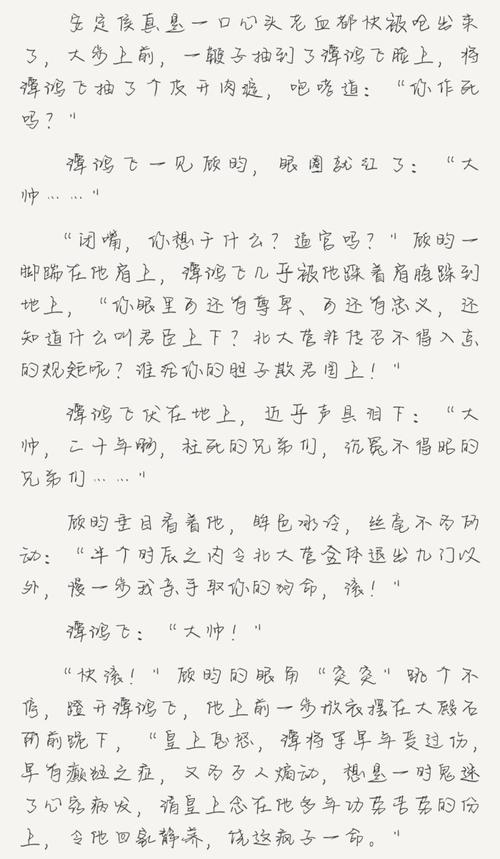 安定侯真是一口心头老血都快被呛出来
了，大步上前，一鞭子抽到了谭鸿飞脸上，将
谭鸿飞抽了个皮开肉绽，咆哮道：“你作死
吗？”
谭鸿飞一见顾昀，眼圈就红了：“大
帅……”
“闭嘴，你想干什么？逼宫吗？”顾昀一
脚踹在他肩上，谭鸿飞几乎被他踩着肩膀跺到
地上，“你眼里可还有尊卑、可还有忠义，还
知道什么叫君臣上下？北大营非传召不得入京
的规矩呢？谁给你的胆子欺君罔上！”
谭鸿飞伏在地上，近乎声具泪下：“大
帅，二十年啊，枉死的兄弟们，沉冤不得昭的
兄弟们……”
顾昀垂目看着他，眸色冰冷，丝毫不为所
动：“半个时辰之内令北大营全体退出九门以
外，慢一步我亲手取你的狗命，滚！”
谭鸿飞：“大帅！”
“快滚！”顾昀的眼角“突突”跳个不
停，蹬开谭鸿飞，他上前一步放衣摆在大殿石
阶前跪下，“皇上息怒，谭将军早年受过伤，
早有癫狂之症，又为歹人煽动，想是一时鬼迷
了心窍病发，请皇上念在他多年功劳苦劳的份
上，令他回家静养，饶这疯子一命。”